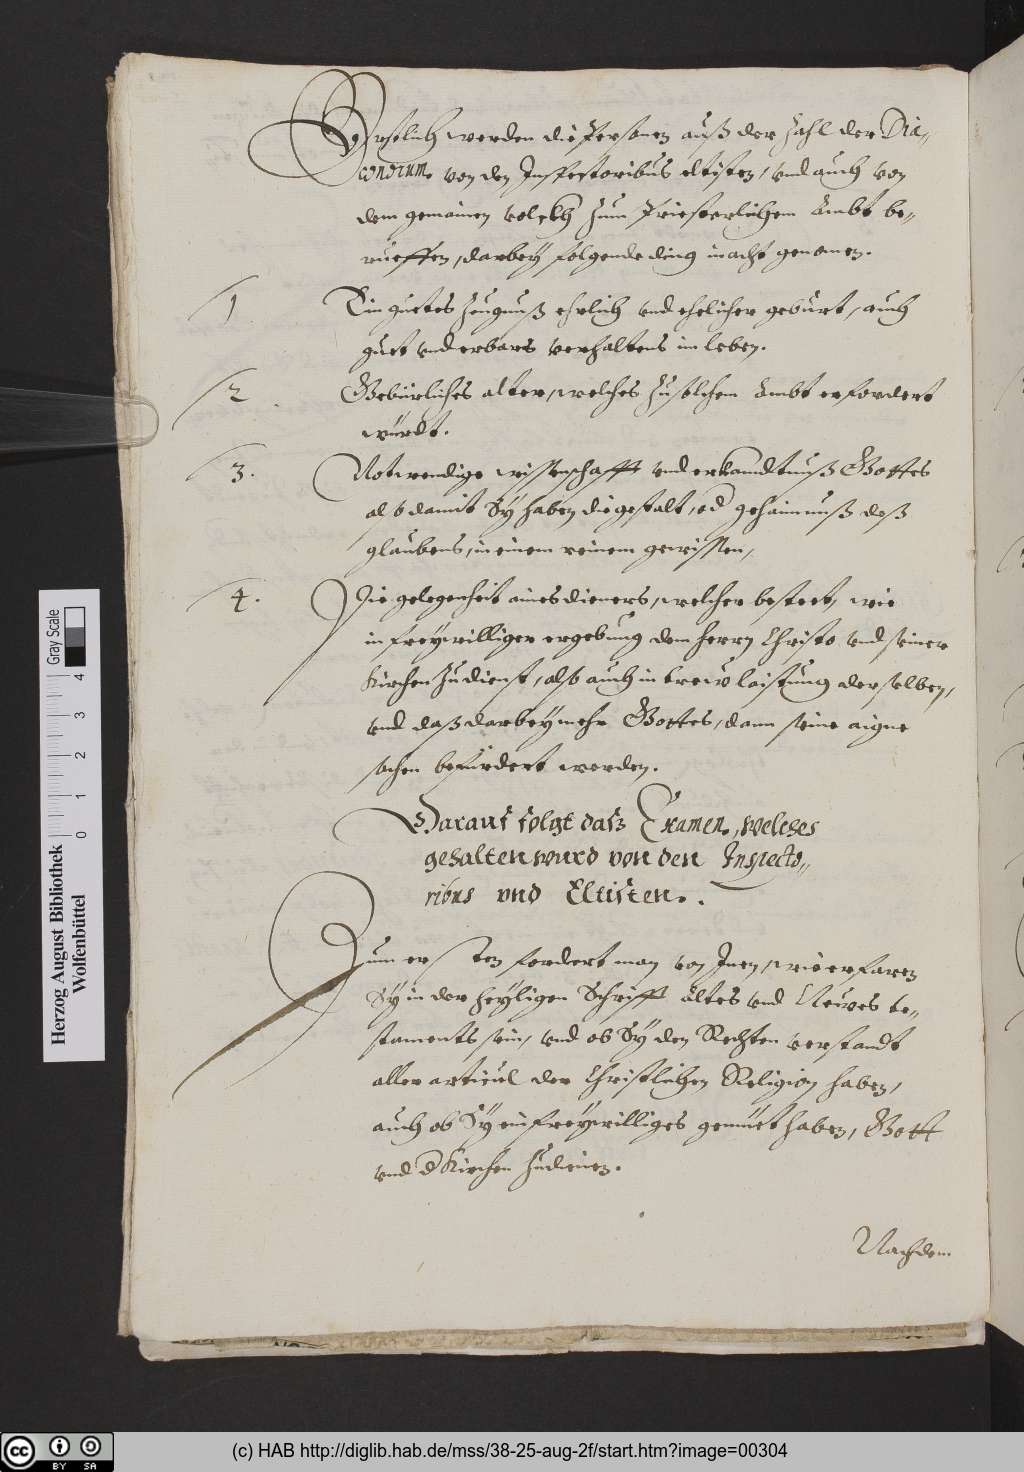 Erstlich werden die Personen auß der Zahl der Dia-
conorum von den Inspectoribus eltisten, vnd auch von
dem gemainen volckh zum Priesterlichem Ambt be-
rueffen, darbey folgende ding in acht genomen.
1 Ein guetes Zeugnuß ehrlich vnd ehelicher geburt, auch
guet vnd erbars verhaltens im leben.
2. Gebürliches alter, welches zu solchem Ambt erfordert
würdt.
3. Notwendige wissenschafft vnd erkandtnuß Gottes
alß damit Sÿ haben die gestalt, od gehaimnuß deß
glaubens, in einem reinem gewissen,
4. Die gelegenheit aines dieners, welcher besteet, wie
in freywilliger ergebung dem herrn Christo vnd seiner
Kirchen zu dienst, alß auch in trew laistung derselben,
vnd daß darbey mehr Gottes, dann seine aigne
sachen befürdert werden.
Darauf folgt daß Examen, welches
gehalten würd von den Inspecto-
ribus vnd Eltisten.
Zum ersten fordert man von Inen, wie erfaren
Sÿ in der heyligen Schrifft altes vnd Neuwes te-
staments sein, vnd ob Sÿ den Rechten verstandt
aller articul der Christlichen Religion haben,
auch ob Sÿ ein freywilliges gemüet haben, Gott
vnd d Kirchen zudienen.
Nachdem
Herzog August Bibliothek
Wolfenbüttel
0 1 2 3 4
Gray Scale
cc BY SA
(c) HAB http://diglib.hab.de/mss/38-25-aug-2f/start.htm?image=00304